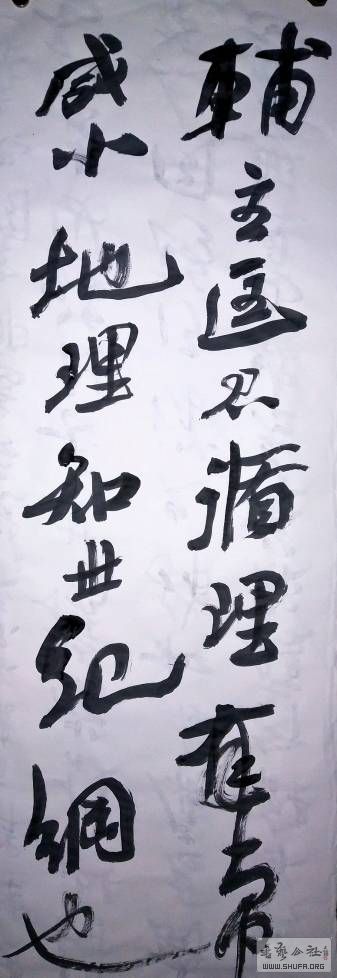 輔主匡循理有常
咸地理知世紀綱也
書藝公社
WWW.SHUFA.ORG